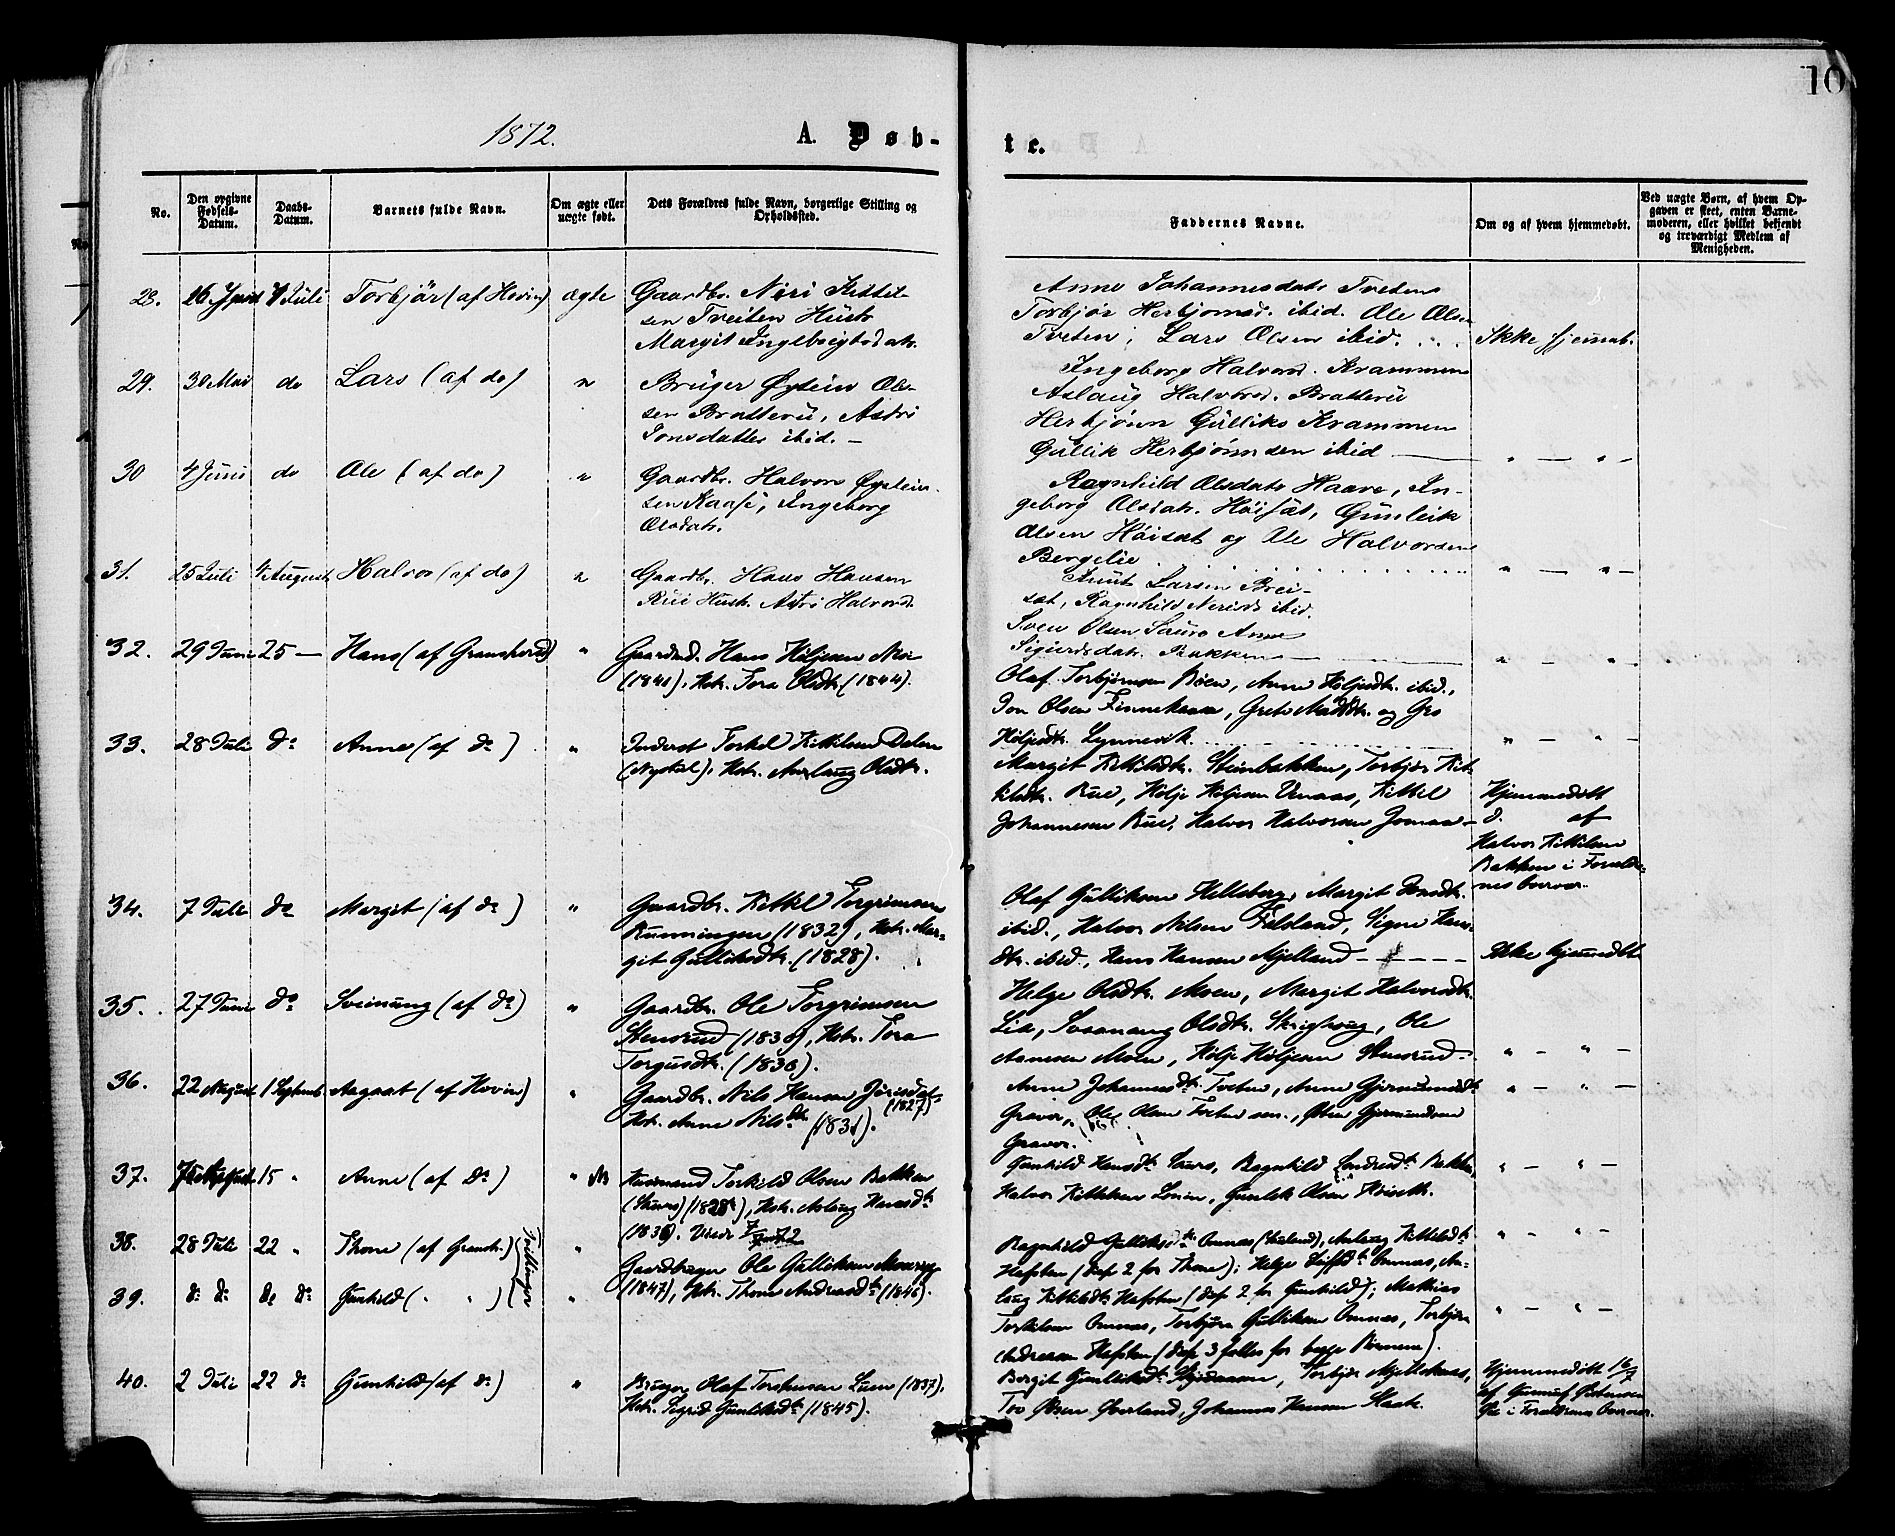 10
1872.
A. Døb-
te.
No.
Den opgivne Fødsels-Datum.
Daabs-Datum.
Barnets fulde Navn.
Om ægte eller uægte født.
Dets Forældres fulde Navn, borgerlige Stilling og Opholdssted.
Faddernes Navne.
Om og af hvem hjemmedøbt.
Ved uægte Børn, af hvem Opgaven er skeet, enten Barnemoderen, eller hvilket bekjendt og troværdigt Medlem af Menigheden.
28. 26 Juni 7 Juli Torbjør (af Hovin) ægte Gaardbr. Niri Kittil-
sen Tveiten Hustr.
Margit Ingebrigtsdatr.
Anne Johannesdatr Tveten
Torbjør Herbjørnsd. ibid. Ole Olsen
Tveten, Lars Olsen ibid. Ikke hjemmd.
29. 30 Mai do Lars (af do) " Brüger Øystein Ol-
sen Bratterü, Astri
Jonsdatter ibid. —
Ingeborg Halvorsd. Krammen
Aslaug Halvorsd. Bratterü
Herbjörn Gülliks Krammen
Güllik Herbjørnsen ibid — " — " —
30 4 Juni do Ole (af do) " Gaardbr. Halvor Øystein-
sen Kaase, Ingeborg
Olsdatr.
Ragnhild Olsdatr Haave, In-
geborg Olsdatr. Höisæt, Gunleik
Olsen Höisæt og Ole Halvorsen
Bergelie " — " —
31. 25 Juli 4 August Halvor (af do) " Gaardbr. Hans Hansen
Rüi Hustr. Astri Halvorsd.
Knut Larsen Brei-
sæt, Ragnhild Nerisd. ibid.
Sven Olsen Saure Anne
Sigurdsdatr. Bakken — " — " —
32. 29 Juni 25 — Hans (af Gransherred) " Gaardbr. Hans Höljesen
(1841), Hstr. Tora Olsdtr. (1844).
Olaf Torbjørnsen Böen, Anne Höljesdtr. ibid.,
Jon Olsen Finnekaasa, Grete og Gro
Höljesdtr. Lynnevik. " — " —
33. 28 Juli do Anne (af do) " Inderst Torkel Kittilsen Dalen
(Nystul), Hstr. Aaslaug Olsdtr.
Margit Kittilsdtr. Steinbakken, Torbjör Kit-
tilsdtr. Rue, Hölje Höljesen Uvaas, Kittil
Johannesen Rue, Halvor Halvorsen
Hjemmedöbt
d. af
Halvor Kittilsen
Bakken i Foræld-
renes Overvær.
34. 7 Juli do Margit (af do) " Gaardbr. Kittil Torgrimsen
Runningen (1832), Hstr. Mar-
git Gulliksdtr. (1828).
Olaf Gulliksen Helleberg, Margit Jonsdtr.
ibid., Halvor Nilsen Filsland, Signe Hans-
dtr. ibid., Hans Hansen Mjelland — Ikke hjemmedöbt
35. 27 Juni do Sveinung (af do) " Gaardbr. Ole Torgrimsen
Stensrud (1836), Hstr. Tora
Torgusdtr. (1836).
Helge Olsdtr. Moen, Margit Halvorsdtr.
Lia, Olsdtr. Skrighoug, Ole
Aanesen Moen, Hölje Höljesen Stensrud " — " —
36. 22 August 1 Septemb. Aagaat (af Hovin) " Gaardbr. Nils Hansen Jørisdal (1827)
Hstr. Anne Nilsdtr. (1831).
Anne Johannesdtr. Tveten, Anne Gjermundsdtr.
Gravor, Ole Olsen Tveten sen., Østen Gjermundsen
Gravor. " — " —
37. 15 " Anne (af do) " Huusmand Torkild Olsen Bakken
(1828), Hstr. Aslaug Hansdtr.
(1836).
Gunhild Hansdtr. Saure, Ragnhild Bakken,
Halvor Kittilsen, Gunlek Olsen Höiseth. " — " —
38. 28 Juli 22 " Thone (af Gransh.) " Gaardbruger Ole Gulliksen
(1847), Hstr. Thone Andreasdtr. (1846).
Tvillinger
39. do do do do Gunhild (" ") "
Ragnhild Gulliksdtr. Omnæs, Aslaug Kittilsdtr.
Hafsten (disse 2 for Thone); Helge Leifsdtr. Omnæs, As-
laug Kittilsdtr. Hafsten (disse 2 for Gunhild); Mathias
Torkilsen Omnæs, Torbjörn Gulliksen Omnæs, Torbjörn
Andreasen Hafsten (disse 3 fælles for begge Börnene). " — " —
40. 2 Juli 22 do Gunhild (af do) " Bruger Olaf Torstensen Luen (1837),
Hstr. Sigrid Gunleksdtr. (1845).
Bergit Gunleksdtr., Torbjør,
Tov Olsen Øverland, Johannes Hansen Slaak.
Hjemmedöbt 16/7
af Gunnuf
i Forældrenes Overvær.